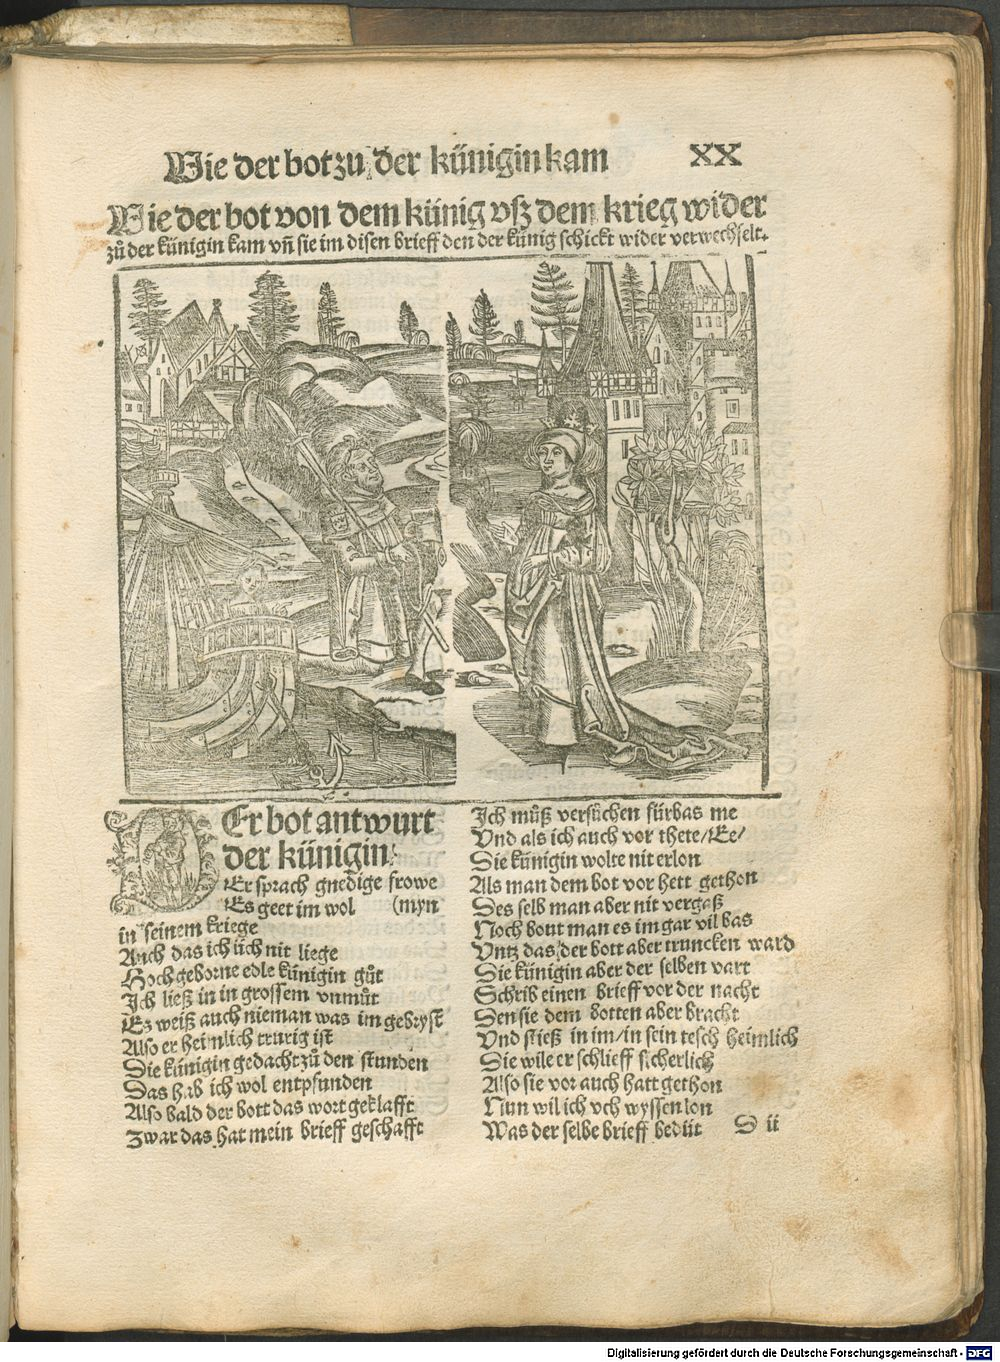 Wie der bot zu der künigin kam XX
Wie der bot von dem künig vsz dem krieg wider
zů der künigin kam vñ sie im disen brieff den der künig schickt wider verwechselt.
DEr bot antwurt
der künigin
Er sprach gnedige frowe
Es geet im wol (myn
in seinem kriege
Auch das ich üch nit liege
Hochgeborne edle künigin gůt
Ich ließ in in grossem vnmůt
Es weiß auch nieman was im gebryst
Also er heimlich trurig ist
Die künigin gedacht zů den stunden
Das hab ich wol entpfunden
Also bald der bott das wort geklafft
Zwar das hat mein brieff geschafft
Ich můß versůchen fürbas me
Vnd als ich auch vor thete/Ee/
Die künigin wolte nit erlon
Als man dem bot vor hett gethon
Des selb man aber nit vergaß
Noch bout man es im gar vil bas
Vntz das der bott aber truncken ward
Die künigin aber der selben vart
Schrib einen brieff vor der nacht
Den sie dem botten aber bracht
Vnd stieß in im/in sein tesch heimlich
Die wile er schlieff sicherlich
Also sie vor auch hatt gethon
Nun wil ich vch wyssen lon
Was der selbe brieff bedüt D ii
Digitalisierung gefördert durch die Deutsche Forschungsgemeinschaft - DFG